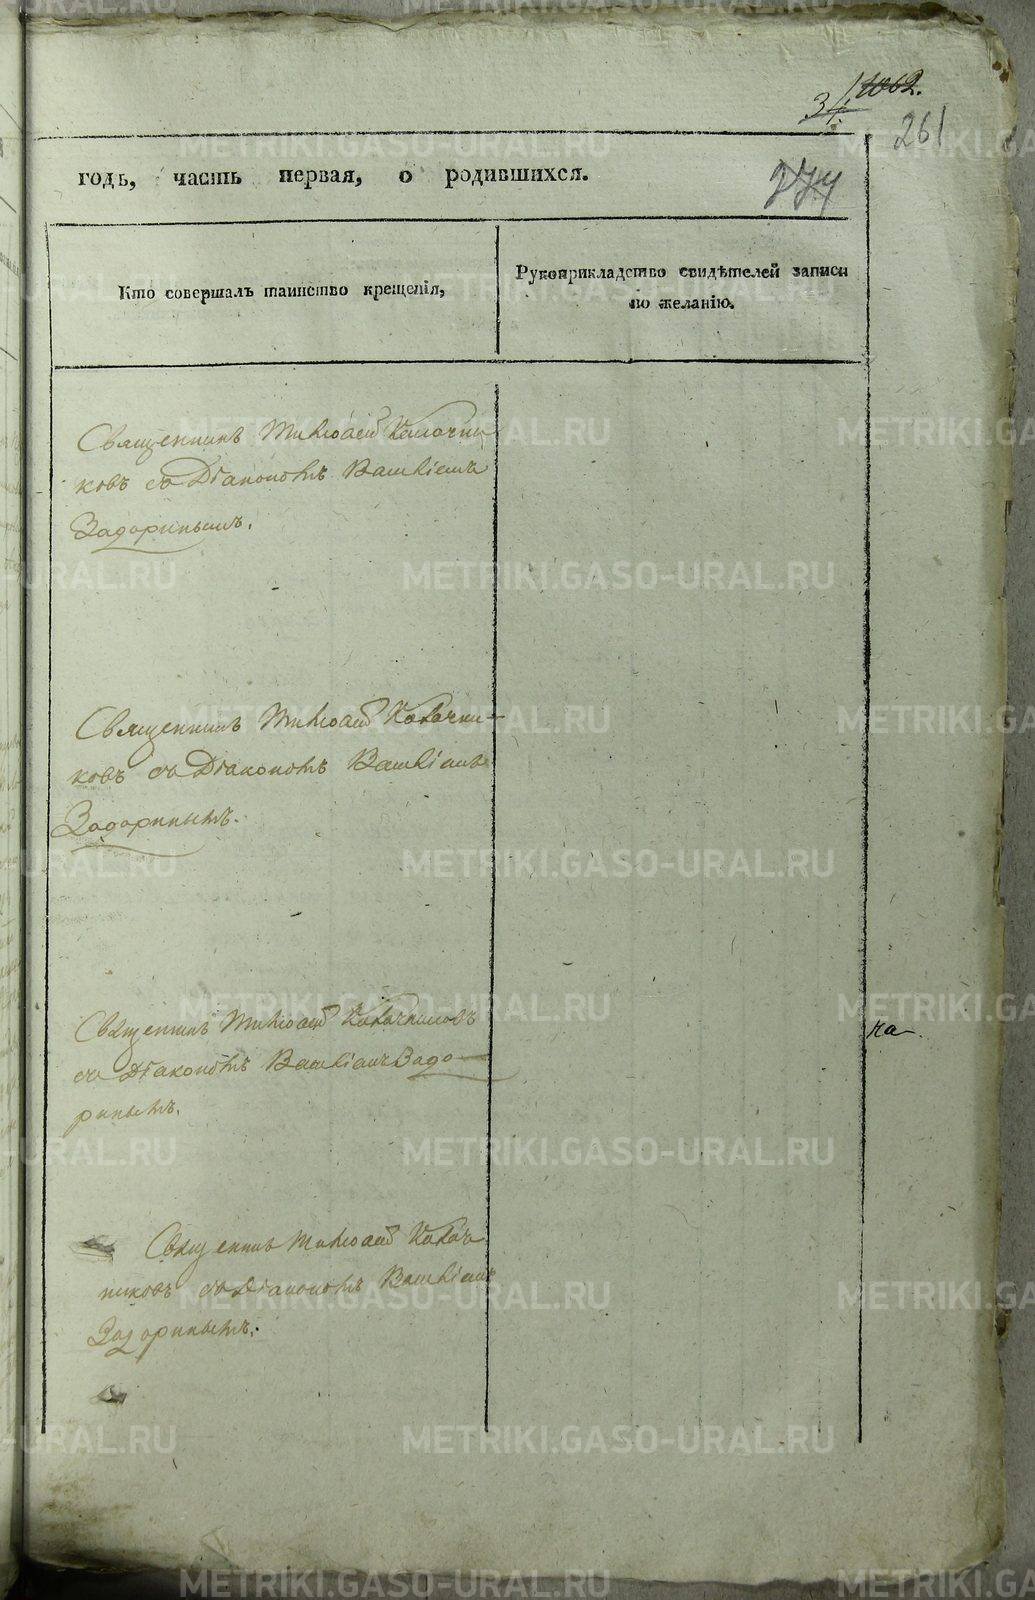 1062.
261
274
годъ, часть первая, о родившихся.
Кто совершалъ таинство крещенія,
Рукоприкладство свидѣтелей записи
по желанію.
Священникъ Николай Калачни
ковъ съ Діакономъ Василіемъ
Задоринымъ.
Священникъ Николай Калачни-
ковъ съ Діакономъ Василіемъ
Задоринымъ.
Священникъ Николай Калачниковъ
съ Діакономъ Василіемъ Задо-
ринымъ.
на
Священникъ Николай Калач
никовъ съ Діакономъ Василіемъ
Задоринымъ.
METRIKI.GASO-URAL.RU